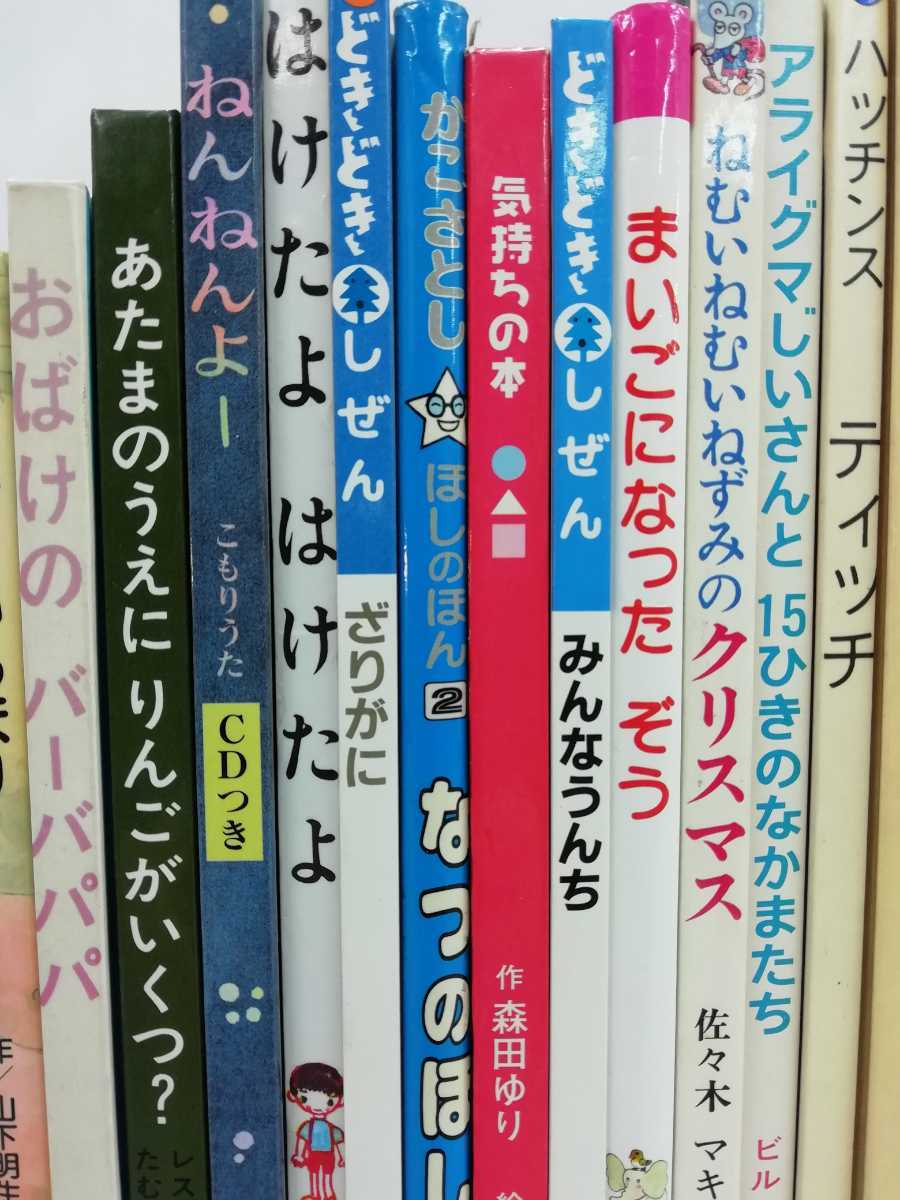 年/山下明生
おばけの バーバパパ
あたまのうえに りんごがいくつ?
レス
たむ
ねんねんよー
こもりうた
CDつき
はけたよ はけたよ
どきどきしぜん
ざりがに
かこさとし
ほしのほん
2
なつのほし
気持ちの本
作 森田ゆり
どきどきしぜん
みんなうんち
まいごになった ぞう
ねむいねむいねずみのクリスマス
佐々木 マキ
アライグマじいさんと 15ひきのなかまたち
ビル
ハッチンス
ティッチ